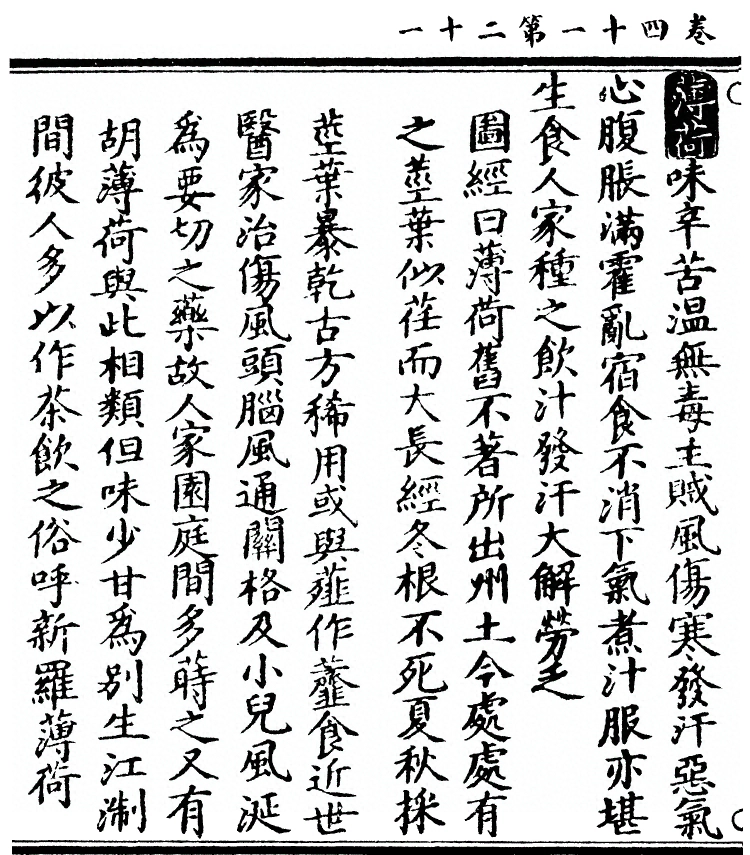 卷四十一第二十一
薄荷味辛苦温無毒主賊風傷寒發汗惡氣
心腹脹滿霍亂宿食不消下氣煮汁服亦堪
生食人家種之飲汁發汗大解勞乏
圖經曰薄荷舊不著所出州土今處處有
之莖葉似荏而大長經冬根不死夏秋採
莖葉暴乾古方稀用或與薤作虀食近世
醫家治傷風頭腦風通關格及小兒風涎
為要切之藥故人家園庭間多蒔之又有
胡薄荷與此相類但味少甘為别生江淛
間彼人多以作茶飲之俗呼新羅薄荷